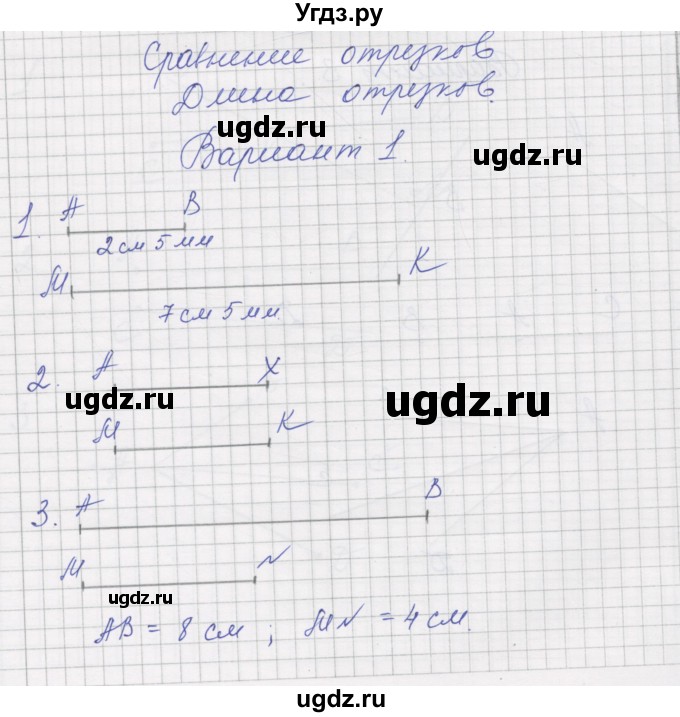 Угдз.ру
Сравнение отрезков
Длина отрезков.
ugdz.ru
Вариант 1.
ugdz.ru
1. А В
2 см 5 мм
М К
7 см 5 мм
2. А Х
ugdz.ru
ugdz.ru
М К
3. А В
М N
ugdz.ru
АВ = 8 см ; MN = 4 см.
ugdz.ru